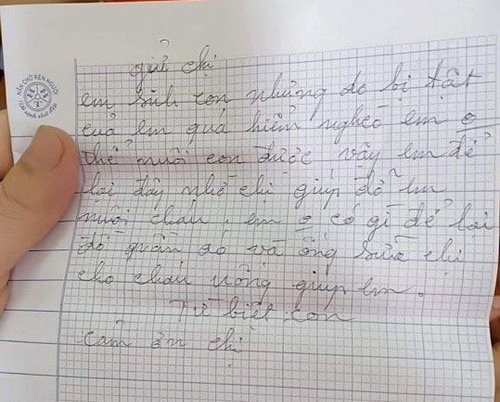 gửi chị
em sinh con nhưng do bị tật
của em quá hiểm nghèo em o
thể nuôi con được vậy em để
lại đây nhờ chị giúp đỡ em
nuôi cháu. em o có gì để lại
đồ quần áo và ống sữa chị
cho cháu uống giúp em.
Từ biệt con
cảm ơn chị
NÉT CHỮ RÈN NGƯỜI